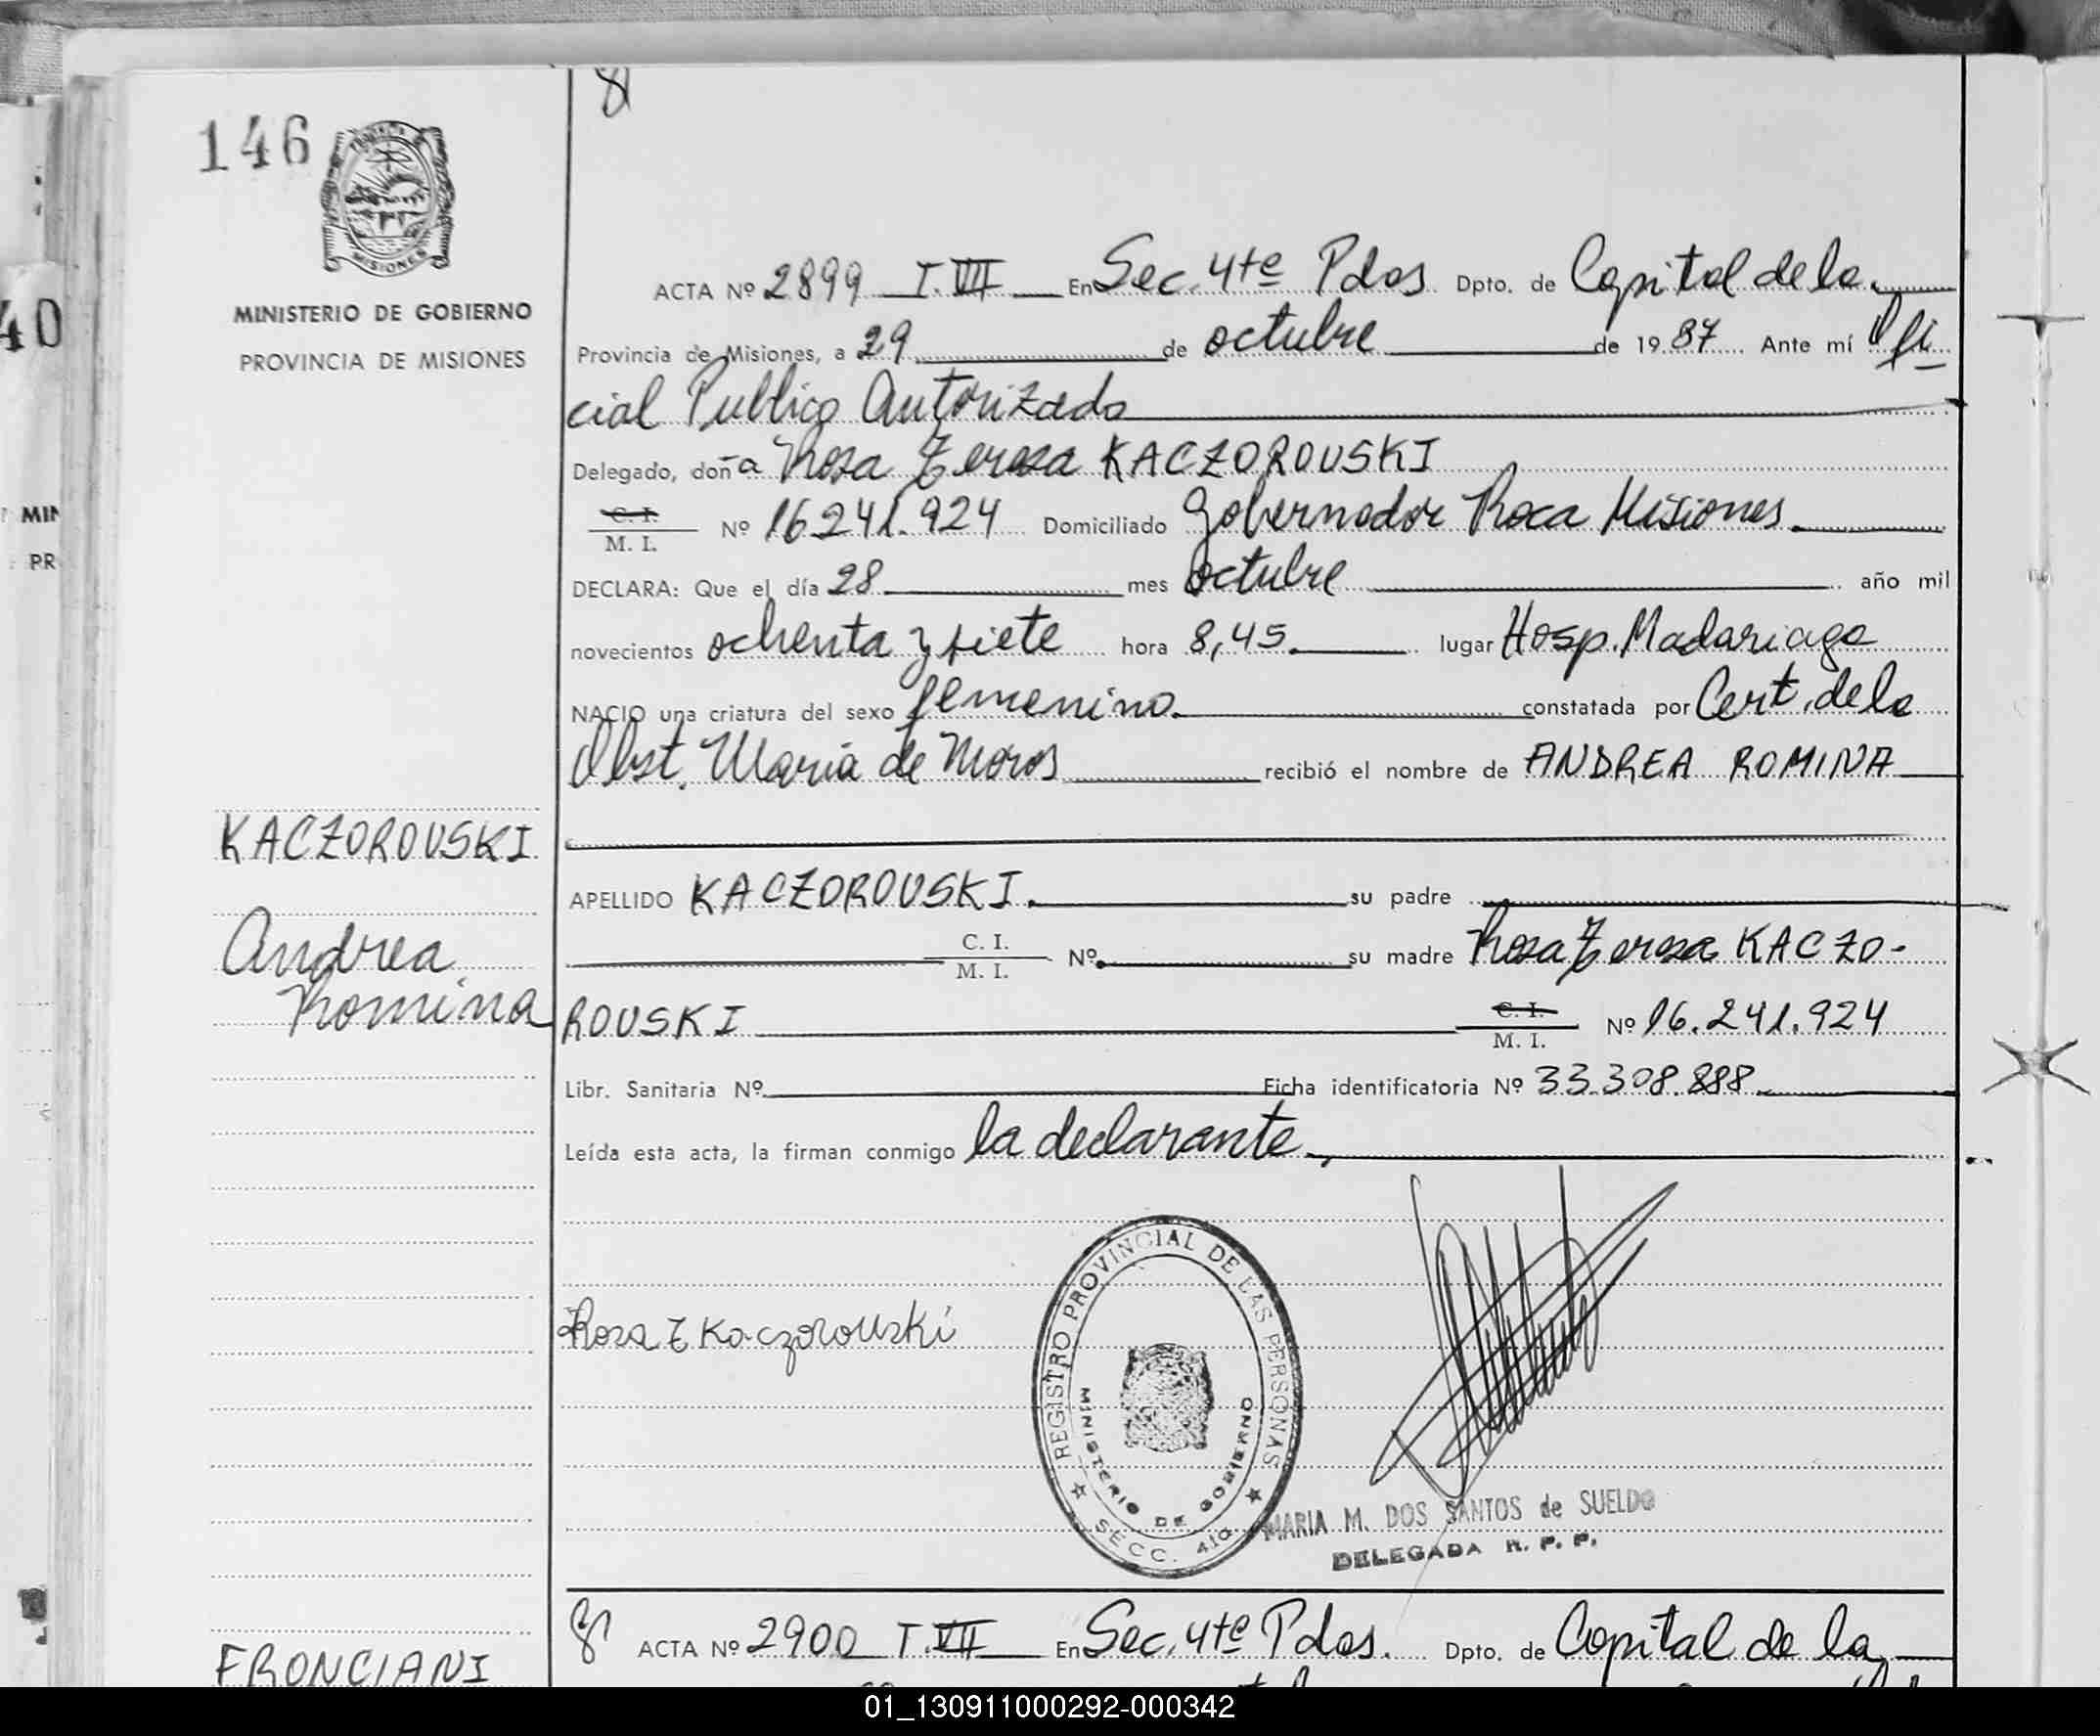 8
146
PROVINCIA
MISIONES
MINISTERIO DE GOBIERNO
PROVINCIA DE MISIONES
40
MIN
PR
ACTA Nº 2899 T. VII En Sec. 4ta Pdas Dpto. de Capital de la
Provincia de Misiones, a 29 de octubre de 1987 Ante mí Ofi
cial Publico Autorizado
Delegado, doña Rosa Tereza KACZOROUSKI
C. I.
M. I. Nº 16.241.924 Domiciliado Gobernador Roca Misiones.
DECLARA: Que el día 28 mes octubre año mil
novecientos ochenta y siete hora 8,45. lugar Hosp. Madariaga
NACIO una criatura del sexo femenino. constatada por Cert. de la
Obst. Maria de Moros recibió el nombre de ANDREA ROMINA
KACZOROUSKI
Andrea
Romina
APELLIDO KACZOROUSKI. su padre
C. I.
M. I. Nº su madre Rosa Tereza KACZO-
ROUSKI C. I.
M. I. Nº 16.241.924
Libr. Sanitaria Nº Ficha identificatoria Nº 33.308.888
Leída esta acta, la firman conmigo la declarante,
Rosa T Kaczorouski
REGISTRO PROVINCIAL DE LAS PERSONAS
MINISTERIO DE GOBIERNO
SECC. 4ta
MARIA M. DOS SANTOS de SUELDO
DELEGADA R. P. P.
8 ACTA Nº 2900 T. VII En Sec. 4ta Pdas. Dpto. de Capital de la
FRONCIANI
01_130911000292-000342